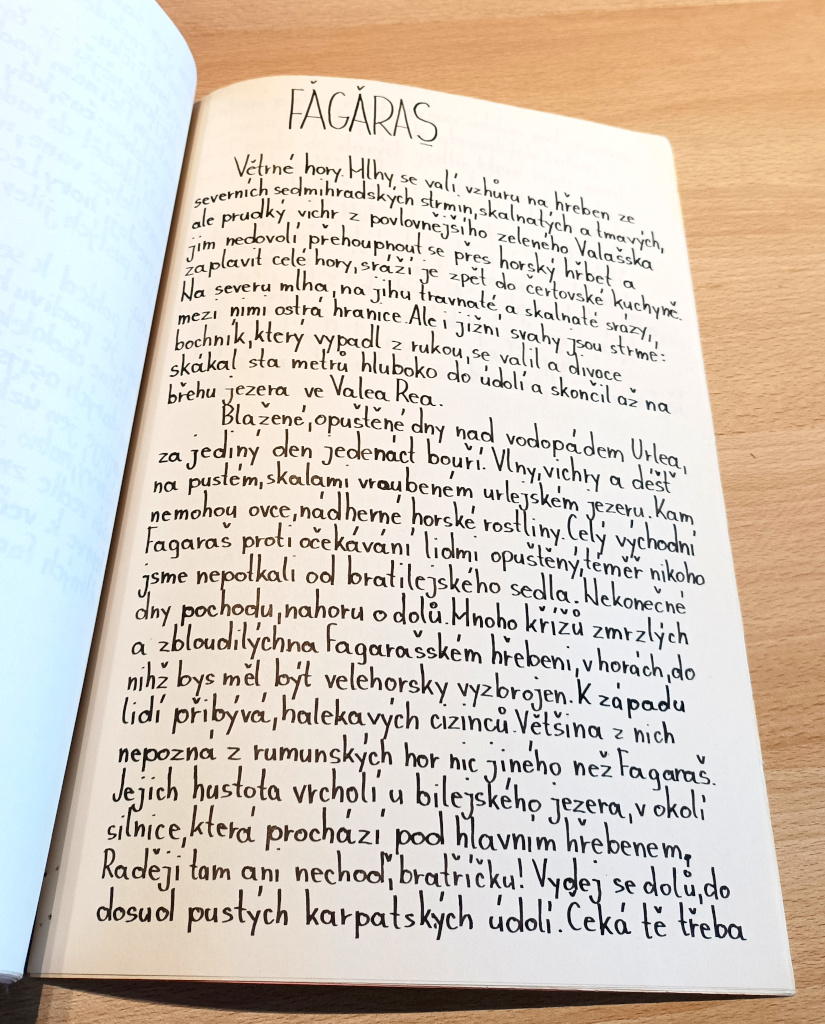 FĂGĂRAȘ
Větrné hory. Mlhy se valí vzhůru na hřeben ze
severních sedmihradských strmin, skalnatých a tmavých,
ale prudký vichr z povlovnějšího zeleného Valašska
jim nedovolí přehoupnout se přes horský hřbet a
zaplavit celé hory, sráží je zpět do čertovské kuchyně.
Na severu mlha, na jihu travnaté, a skalnaté srázy,
mezi nimi ostrá hranice. Ale i jižní svahy jsou strmé:
bochník, který vypadl z rukou, se valil a divoce
skákal sta metrů hluboko do údolí a skončil až na
břehu jezera ve Valea Rea.
Blažené, opuštěné dny nad vodopádem Urlea,
za jediný den jedenáct bouří. Vlny, vichry a déšť
na pustém, skalami vroubeném urlejském jezeru. Kam
nemohou ovce, nádherné horské rostliny. Celý východní
Fagaraš proti očekávání lidmi opuštěný, téměř nikoho
jsme nepotkali od bratilejského sedla. Nekonečné
dny pochodu, nahoru a dolů. Mnoho křížů zmrzlých
a zbloudilých na Fagarašském hřebeni, v horách, do
nihž bys měl být velehorsky vyzbrojen. K západu
lidí přibývá, halekavých cizinců. Většina z nich
nepozná z rumunských hor nic jiného než Fagaraš.
Jejich hustota vrcholí u bilejského jezera, v okolí
silnice, která prochází pod hlavním hřebenem.
Raději tam ani nechoď, bratříčku! Vydej se dolů, do
dosud pustých karpatských údolí. Čeká tě třeba